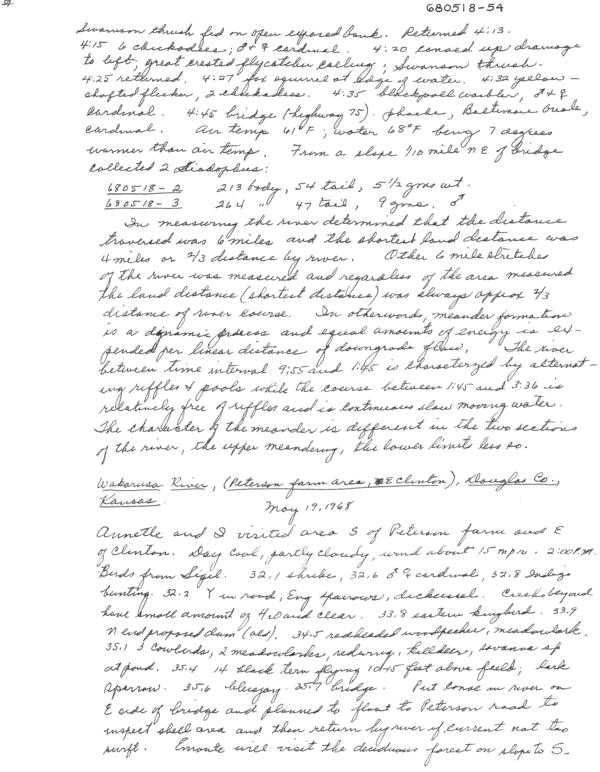 54
680518-54
Swainson thrush fed on open exposed bank. Returned 4:13.
4:15 6 chickadees; ♂ + ♀ cardinal. 4:20 canoed up drainage
to left; great crested flycatcher calling; Swanson thrush.
4:25 returned. 4:27 fox squirrel at edge of water. 4:32 yellow-
shafted flicker, 2 chickadees. 4:35 blackpoll warbler, ♂ + ♀
cardinal. 4:45 bridge (highway 75). Phoebe, Baltimore Oriole,
cardinal. Air temp 61°F; water 68°F being 7 degrees
warmer than air temp. From a slope 1/10 mile NE of bridge
collected 2 Diadophus:
680518-2 213 body, 54 tail, 5 1/2 gms wt.
680518-3 264 " 47 tail, 9 gms. ♂
In measuring the river determined that the distance
traversed was 6 miles and the shortest land distance was
4 miles or 2/3 distance by river. Other 6 mile stretches
of the river was measured and regardless of the area measured
the land distance (shortest distance) was always approx 2/3
distance of river course. In otherwords, meander formation
is a dynamic process and equal amounts of energy is ex-
pended per linear distance of downgrade flow. The river
between time interval 9:55 and 1:45 is characterized by alternat-
ing riffles & pools while the course between 1:45 and 3:36 is
relatively free of riffles and is continuous slow moving water.
The character of the meander is different in the two sections
of the river, the upper meandering, the lower limits less so.
Wakarusa River, (Peterson farm area, E Clinton), Douglas Co.,
Kansas.
May 19, 1968
Annette and I visited area S of Peterson farm and E
of Clinton. Day cool, partly cloudy, wind about 15 mph. 2:00 P.M.
Birds from Sigel. 32.1 shrike, 32.6 ♂ ♀ cardinal, 32.8 Indigo
bunting. 32.2 Y in road, Eng sparrows, dickcissel. Creeks beyond
have small amount of H2O and clear. 33.8 eastern kingbird. 33.9
N end proposed dam (aed). 34.5 redheaded woodpecker, meadowlark.
35.1 3 cowbirds, 2 meadowlarks, redwing, killdeer, savanna sp
at pond. 35.4 14 black tern flying 10-15 feet above field; lark
sparrow. 35.6 bluejay. 35.7 bridge. Put canoe in river on
E side of bridge and planned to float to Peterson road to
inspect shell area and then return by river if current not too
swift. Enroute will visit the deciduous forest on slope to S.